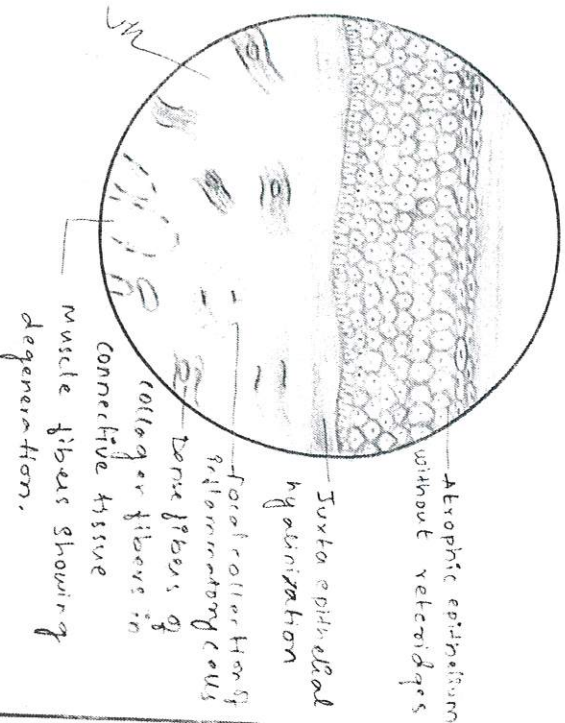 Atrophic epithelium
without reteridges
Juxta epithelial
hyalinization
focal collection of
inflammatory cells
Dense fibers of
collagen fibers in
connective tissue
Muscle fibers showing
degeneration.